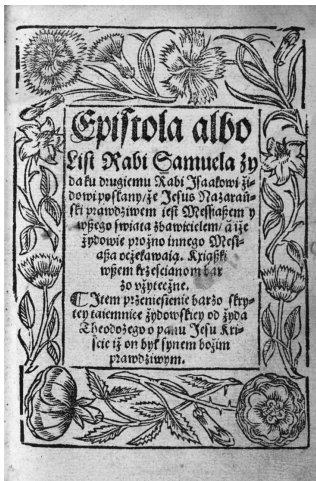 Epistola albo
List Rabi Samuela ży
da ku drugiemu Rabi Isaakowi ży-
dowi posłany/ że Jesus Nazarań-
ski prawdziwem iest Messyaßem y
wßego świata zbawicielem/ a iże
żydowie prożno innego Mess-
aßa oczekawaią. Xiąßki
wßem krześcianom bar
zo vżyteczne.
Item przeniesienie barzo skry-
tey taiemnice żydowskiey od żyda
Theodozego o panu Jesu Kri-
ście iż on był synem bożim
prawdziwym.